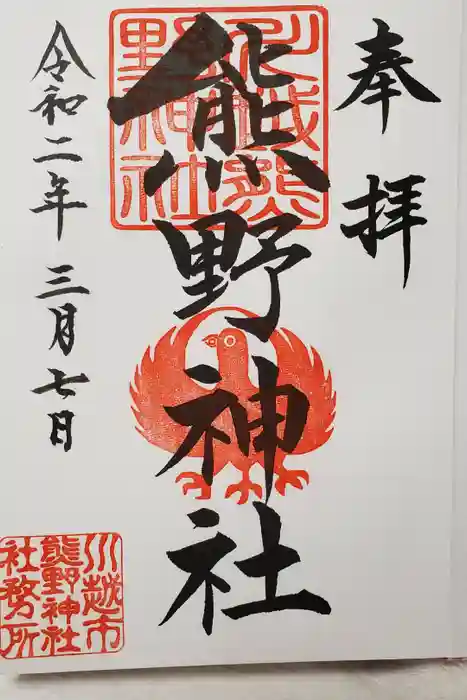 奉拝
熊野神社
令和二年三月七日
川越熊
野神社
川越市
熊野神社
社務所